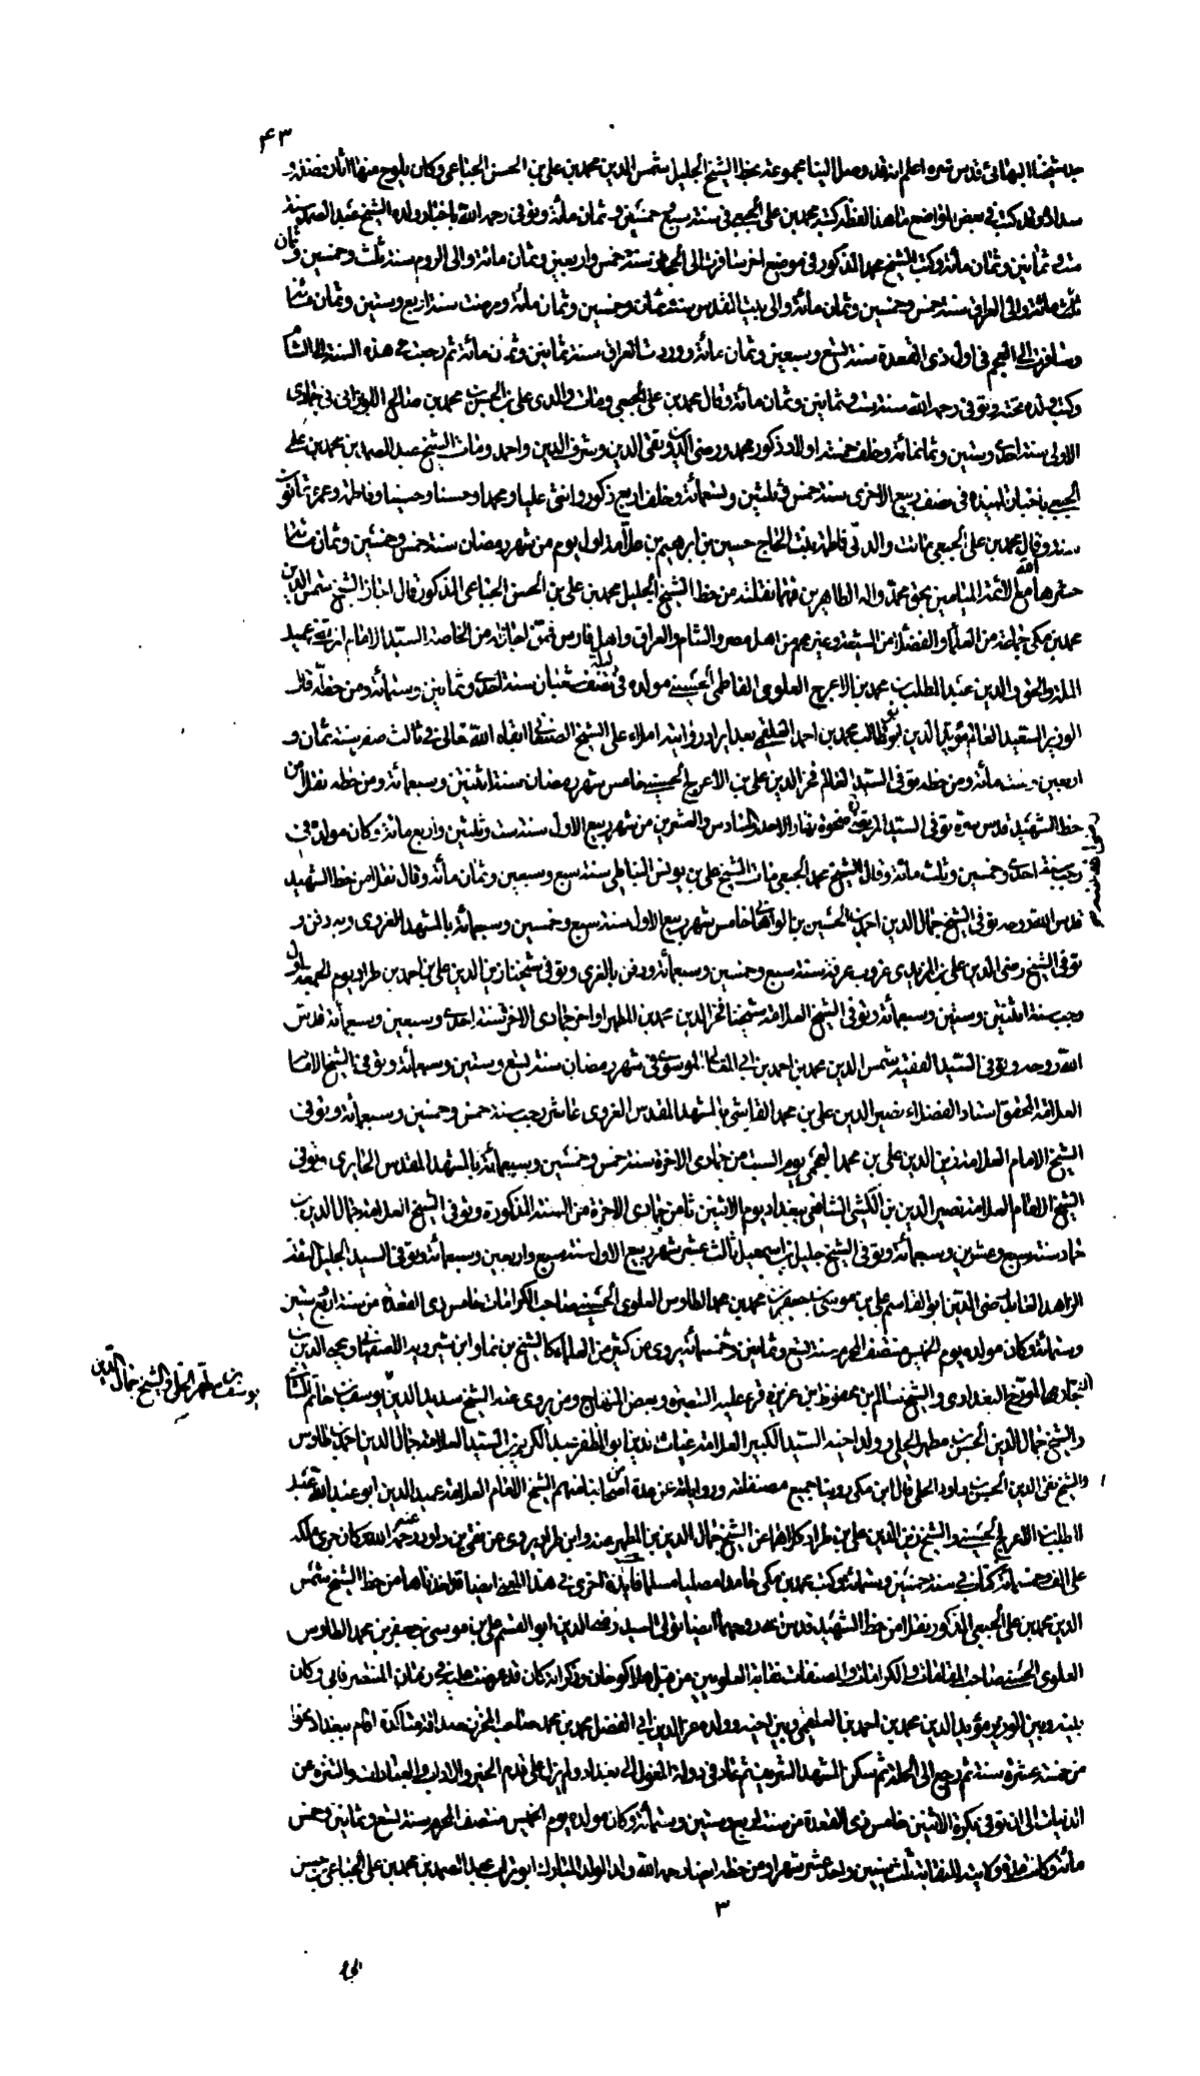 ۴۳
جد شيخنا البهائى قدس سره اعلم انه قد وصل الينا مجموعة بخط الشيخ الجليل شمس الدين محمد بن على بن الحسن الجباعى وكان يلوح منها اثار فضله و
سداده وقد كتب فى بعض المواضع ما هذا لفظه كتبه محمد بن على الجبعى فى سنة سبع وخمسين و ثمان مائة وتوفى رحمه الله باخبار ولده الشيخ عبد الصمد سنة
ست و ثمانين وثمان مائة وكتب الشيخ محمد المذكور فى موضع اخر سافرت الى الحجاز سنة خمس واربعين وثمان مائة والى الروم سنة ثلث وخمسين و ثمان
مائة والى العراق سنة خمس وخمسين وثمان مائة والى بيت المقدس سنة ثمان وخمسين وثمان مائة ومرضت سنة اربع وستين وثمان مائة
وسافرت الى العجم فى اول ذى القعدة سنة تسع وسبعين وثمان مائة ووردت العراق سنة ثمانين وثمان مائة ثم رجعت فى هذه السنة الى الشام
وكتب ولده تحته وتوفى رحمه الله سنة ست وثمانين وثمان مائة وقال محمد بن على الجبعى ومات والدى على بن الحسن بن محمد بن صالح اللويزانى فى جمادى
الاولى سنة احدى وستين وثمانمائة وخلف خمسة اولاد ذكور محمد ورضى الدين وتقى الدين وشرف الدين واحمد ومات الشيخ عبد الصمد بن محمد بن على
الجبعى باخبار تلميذه فى نصف ربيع الاخرى سنة خمس و ثلثين وتسعمائة وخلف اربع ذكور وانثى عليا ومحمدا وحسنا وحسينا وفاطمة وعمره ثمانون
سنة وقال محمد بن على الجبعى ماتت والدتى فاطمة بنت الحاج حسين بن ابرهيم بن علامة اول يوم من شهر رمضان سنة خمس وخمسين وثمان مائة
حشرها الله مع الائمة الميامين بحق محمد واله الطاهرين ومما نقلته من خط الشيخ الجليل محمد بن على بن الحسن الجباعى المذكور قال اجاز الشيخ شمس الدين
محمد بن مكى جماعة من العلماء والفضلاء من الشيعة وغيرهم من اهل مصر والشام والعراق واهل فارس فممن اجازه من الخاصة السيد الامام المرتضى عميد
الملة والحق والدين عبد المطلب بن محمد بن الاعرج العلوى الفاطمى الحسينى مولده فى ليلة نصف شعبان سنة احدى وثمانين وستمائة ومن خطه قال
الوزير السعيد العالم مؤيد الدين ابو طالب محمد بن احمد العلقمى بعد ايراد رواية املاء على الشيخ الصغانى ابقاه الله تعالى فى ثالث صفر سنة ثمان و
اربعين وست مائة ومن خطه توفى السيد العالم فخر الدين على بن الاعرج الحسينى خامس شهر رمضان سنة اثنتين وسبعمائة ومن خطه نقلا من
خط الشهيد قدس سره توفى السيد المرتضى ضحوة نهار الاحد السادس والعشرين من شهر ربيع الاول سنة ست وثلثين واربع مائة وكان مولده فى
رجب سنة احدى وخمسين وثلث مائة وقال الشيخ محمد الجبعى مات الشيخ على بن يونس النباطى سنة سبع وسبعين وثمان مائة وقال نقلا من خط الشهيد
قدس الله روحه توفى الشيخ جمال الدين احمد بن الحسين خامس شهر ربيع الاول سنة سبع وخمسين وسبعمائة بالمشهد الغروى وبه دفن و
توفى الشيخ رضى الدين على بن المزيدى غروب عرفة سنة سبع وخمسين وسبعمائة ودفن بالغرى وتوفى شيخنا زين الدين على بن احمد بن طراد يوم الجمعة اول
رجب سنة اثنتين وستين وسبعمائة وتوفى الشيخ العلامة شيخنا فخر الدين محمد بن المطهر اواخر جمادى الاخرة سنة احدى وسبعين وسبعمائة قدس
الله روحه وتوفى السيد الفقيه شمس الدين محمد بن احمد بن ابى المعالى الموسوى فى شهر رمضان سنة تسع وستين وسبعمائة وتوفى الشيخ الامام
العلامة المحقق استاد الفضلاء نصير الدين على بن محمد القاشى بالمشهد المقدس الغروى عاشر رجب سنة خمس وخمسين وسبعمائة وتوفى
الشيخ الامام العلامة زين الدين على بن محمد يوم السبت من جمادى الاخرة سنة خمس وخمسين وسبعمائة بالمشهد المقدس الحايرى وتوفى
الشيخ الامام العلامة نصير الدين بن الكشى الشافعى ببغداد يوم الاثنين ثامن جمادى الاخرة من السنة المذكورة وتوفى الشيخ العلامة جمال الدين بن
حماد سنة سبع وعشرين وسبعمائة وتوفى الشيخ جليل بن اسمعيل ثالث عشر شهر ربيع الاول سنة سبع واربعين وسبعمائة وتوفى السيد الجليل الفقيه
الزاهد العابد رضى الدين ابو القاسم على بن موسى بن جعفر بن محمد بن محمد الطاوس العلوى الحسينى صاحب الكرامات خامس ذى القعدة من سنة اربع ستين
وستمائة وكان مولده يوم الخميس منتصف المحرم سنة تسع وثمانين وخمسمائة يروى عن كثير من العلماء كالشيخ بن نما وابن شيرويه الاصفهانى ومحب الدين بن
النجار المؤرخ البغدادى والشيخ سالم بن محفوظ بن عزيزة قرء عليه التبصرة وبعض المنهاج وممن يروى عنه الشيخ سديد الدين يوسف بن حاتم الشامى
يوسف بن مطهر الحلى والشيخ جمال الدين
والشيخ جمال الدين الحسن بن مطهر الحلى وولد اخيه السيد الكبير العلامة غياث الدين ابو المظفر عبد الكريم بن السيد العلامة جمال الدين احمد بن طاوس
والشيخ تقى الدين الحسن بن داود الحلى قال ابن مكى روينا جميع مصنفاته ورواياته عن عدة من اصحابنا منهم الشيخ الامام العلامة عميد الدين ابو عبد الله عبد
المطلب بن الاعرج الحسينى والشيخ زين الدين على بن طراد كلاهما عن الشيخ جمال الدين بن المطهر عنه وابن طراد يروى عن تقى بن داود عنه رحمه الله وكان جرى ملكه
على الف وخمسمائة كتاب فى سنة خمسين وستمائة وكتب محمد بن مكى حامدا مصليا مسلما فايدة اخرى فى هذا المعنى ايضا قد اخذناها من خط الشيخ شمس
الدين محمد بن على الجبعى المذكور نقلا من خط الشهيد قدس روحهما ايضا تولى السيد رضى الدين ابو القسم على بن موسى بن جعفر بن محمد الطاوس
العلوى الحسنى صاحب المقامات والكرامات والمصنفات نقابة العلويين من قبل هلاكو خان وذكر انه كان قد عرضت عليه فى زمان المستنصر فابى وكان
بينه وبين الوزير مؤيد الدين محمد بن احمد بن العلقمى وبين اخيه وولده عز الدين ابى الفضل محمد بن محمد صاحب المخزن صداقة متاكدة اقام ببغداد نحوا
من خمسة عشرة سنة ثم رجع الى الحلة ثم سكن المشهد الشريف ثم عاد فى دولة المغول الى بغداد ولم يزل على قدم الخير والاداب والعبادات والتنزه عن
الدنيات الى ان توفى بكرة الاثنين خامس ذى القعدة من سنة اربع وستين وستمائة وكان مولده يوم الخميس منتصف المحرم سنة تسع وثمانين وخمس
مائة وكانت مدة ولايته النقابة ثلث سنين واحد عشر شهرا ومن خطه ايضا رحمه الله ولد الولد المبارك ابو تراب عبد الصمد بن محمد بن على الجباعى بن حسن
۳